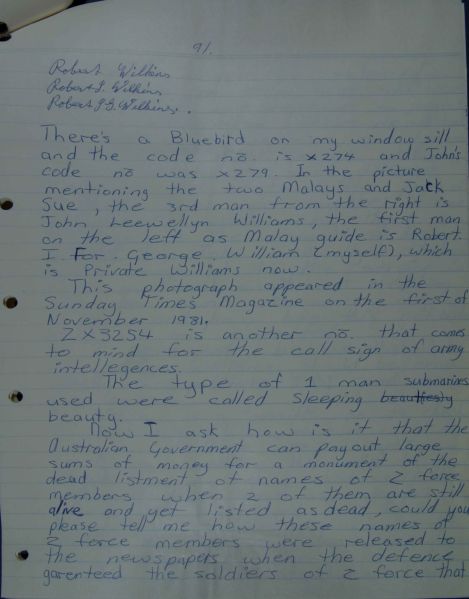 91.
Robert Wilkins
Robert J. Wilkins
Robert J.G. Wilkins.
There's a Bluebird on my window sill
and the code no. is X274 and John's
code no was X279. In the picture
mentioning the two Malays and Jack
Sue, the 3rd man from the right is
John Leewellyn Williams, the first man
on the left as Malay guide is Robert.
I for. George. William (myself), which
is Private Williams now.
This photograph appeared in the
Sunday Times Magazine on the first of
November 1981.
ZX3254 is another no. that comes
to mind for the call sign of army
intellegences.
The type of 1 man submarines
used were called Sleeping
beauty.
Now I ask how is it that the
Australian Government can pay out large
sums of money for a monument of the
dead listment of names of Z force
members when 2 of them are still
alive and yet listed as dead, could you
please tell me how these names of
Z force members were released to
the newspapers when the defence
garenteed the soldiers of Z force that